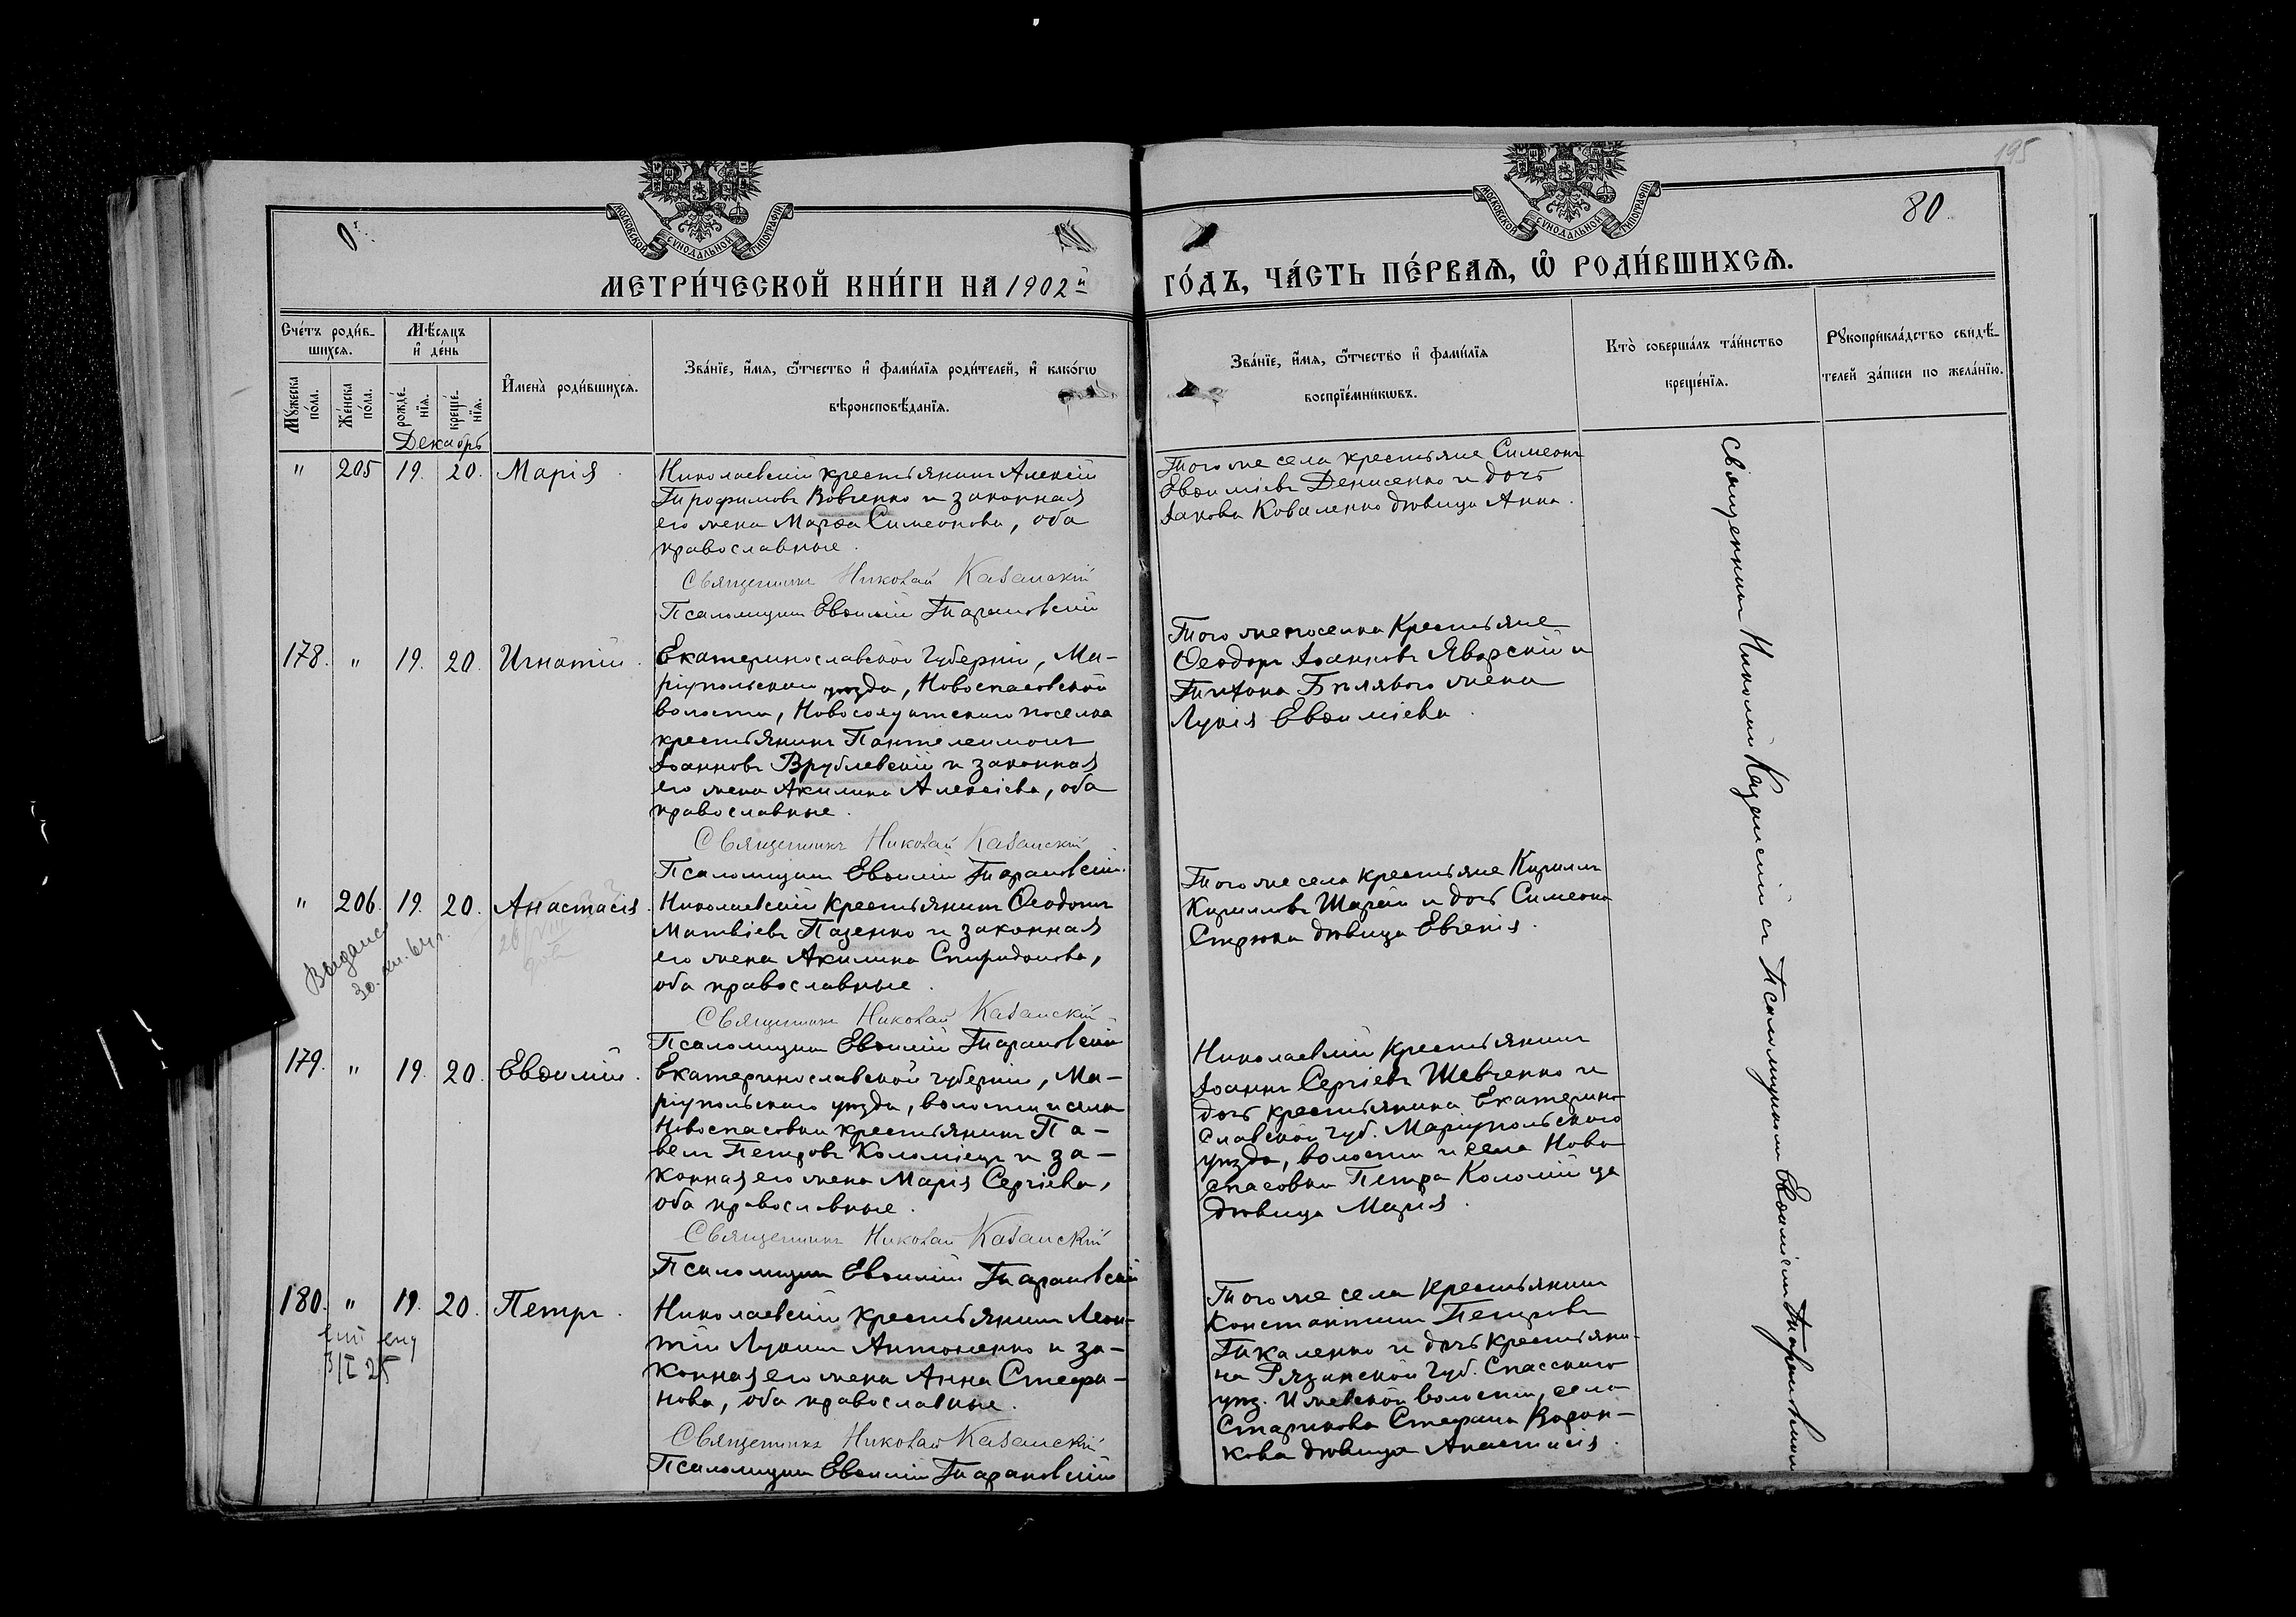 195
80
МОСКОВСКОЙ СѴНОДАЛЬНОЙ ТИПОГРАФІИ
МОСКОВСКОЙ СѴНОДАЛЬНОЙ ТИПОГРАФІИ
МЕТРИ́ЧЕСКОЙ КНИ́ГИ НА 1902й ГО́ДЪ, ЧА́СТЬ ПЕ́РВАѦ, Ѡ҆ РОДИ́ВШИХСѦ.
Сче́тъ роди́в-
шихсѧ.
Мѣ́сѧцъ
и҆ де́нь
Мꙋ́жеска по́ла.
Же́нска по́ла.
рожде́-
нїѧ.
креще́-
нїѧ.
И҆мена̀ роди́вшихсѧ.
Зва́нїе, и҆́мѧ, ѻ҆́тчество и҆ фами́лїѧ роди́телей, и҆ како́гѡ
вѣроисповѣ́данїѧ.
Зва́нїе, и҆́мѧ, ѻ҆́тчество и҆ фами́лїѧ
воспрїе́мникѡвъ.
Кто̀ соверша́лъ та́инство
креще́нїѧ.
Рꙋкоприкла́дство свидѣ́-
телей за́писи по жела́нїю.
Декабрь
" 205 19. 20. Марія.
Николаевскій крестьянинъ Алексій
Трофимовъ Вовченко и законная
его жена Марѳа Симеонова, оба
православные.
Священникъ Николай Казанскій
Псаломщикъ Евѳимій Тарановскій
Того же села крестьяне Симеонъ
Евѳиміевъ Денисенко и дочь
Іакова Коваленко дѣвица Анна.
178. " 19. 20. Игнатій.
Екатеринославской губерніи, Ма-
ріупольскаго уѣзда, Новоспасовской
волости, Новосолдатскаго поселка
крестьянинъ Пантелеимонъ
Іоанновъ Врублевскій и законная
его жена Акилина Алексіева, оба
православные.
Священникъ Николай Казанскій
Псаломщикъ Евѳимій Тарановскій.
Того же поселка крестьяне
Ѳеодоръ Іоанновъ Яворскій и
Тихона Бѣляваго жена
Лукія Евѳиміева.
" 206. 19. 20. Анастасія.
Николаевскій крестьянинъ Ѳеодотъ
Матвіевъ Пазенко и законная
его жена Акилина Спиридонова,
оба православные.
Священникъ Николай Казанскій
Псаломщикъ Евѳимій Тарановскій
Того же села крестьяне Кириллъ
Кирилловъ Шарый и дочь Симеона
Стрюка дѣвица Евгенія.
179. " 19. 20. Евѳимій.
Екатеринославской губерніи, Ма-
ріупольскаго уѣзда, волости и села
Новоспасовки крестьянинъ Па-
велъ Петровъ Коломіецъ и за-
конная его жена Марія Сергіева,
оба православные.
Священникъ Николай Казанскій
Псаломщикъ Евѳимій Тарановскій
Николаевскій крестьянинъ
Іоаннъ Сергіевъ Шевченко и
дочь крестьянина Екатерино-
славской губ. Маріупольскаго
уѣзда, волости и села Ново-
спасовки Петра Коломійца
дѣвица Марія.
180. " 19. 20. Петръ.
Николаевскій крестьянинъ Леон-
тій Лукинъ Антоненко и за-
конная его жена Анна Стефа-
нова, оба православные.
Священникъ Николай Казанскій
Псаломщикъ Евѳимій Тарановскій
Того же села крестьянинъ
Константинъ Петровъ
Ткаленко и дочь крестьяни-
на Рязанской губ. Спасскаго
уѣз. Ижевской волости, села
Старикова Стефана Ворон-
кова дѣвица Анастасія.
Священникъ Николай Казанскій съ Псаломщикомъ Евѳиміемъ Тарановскимъ